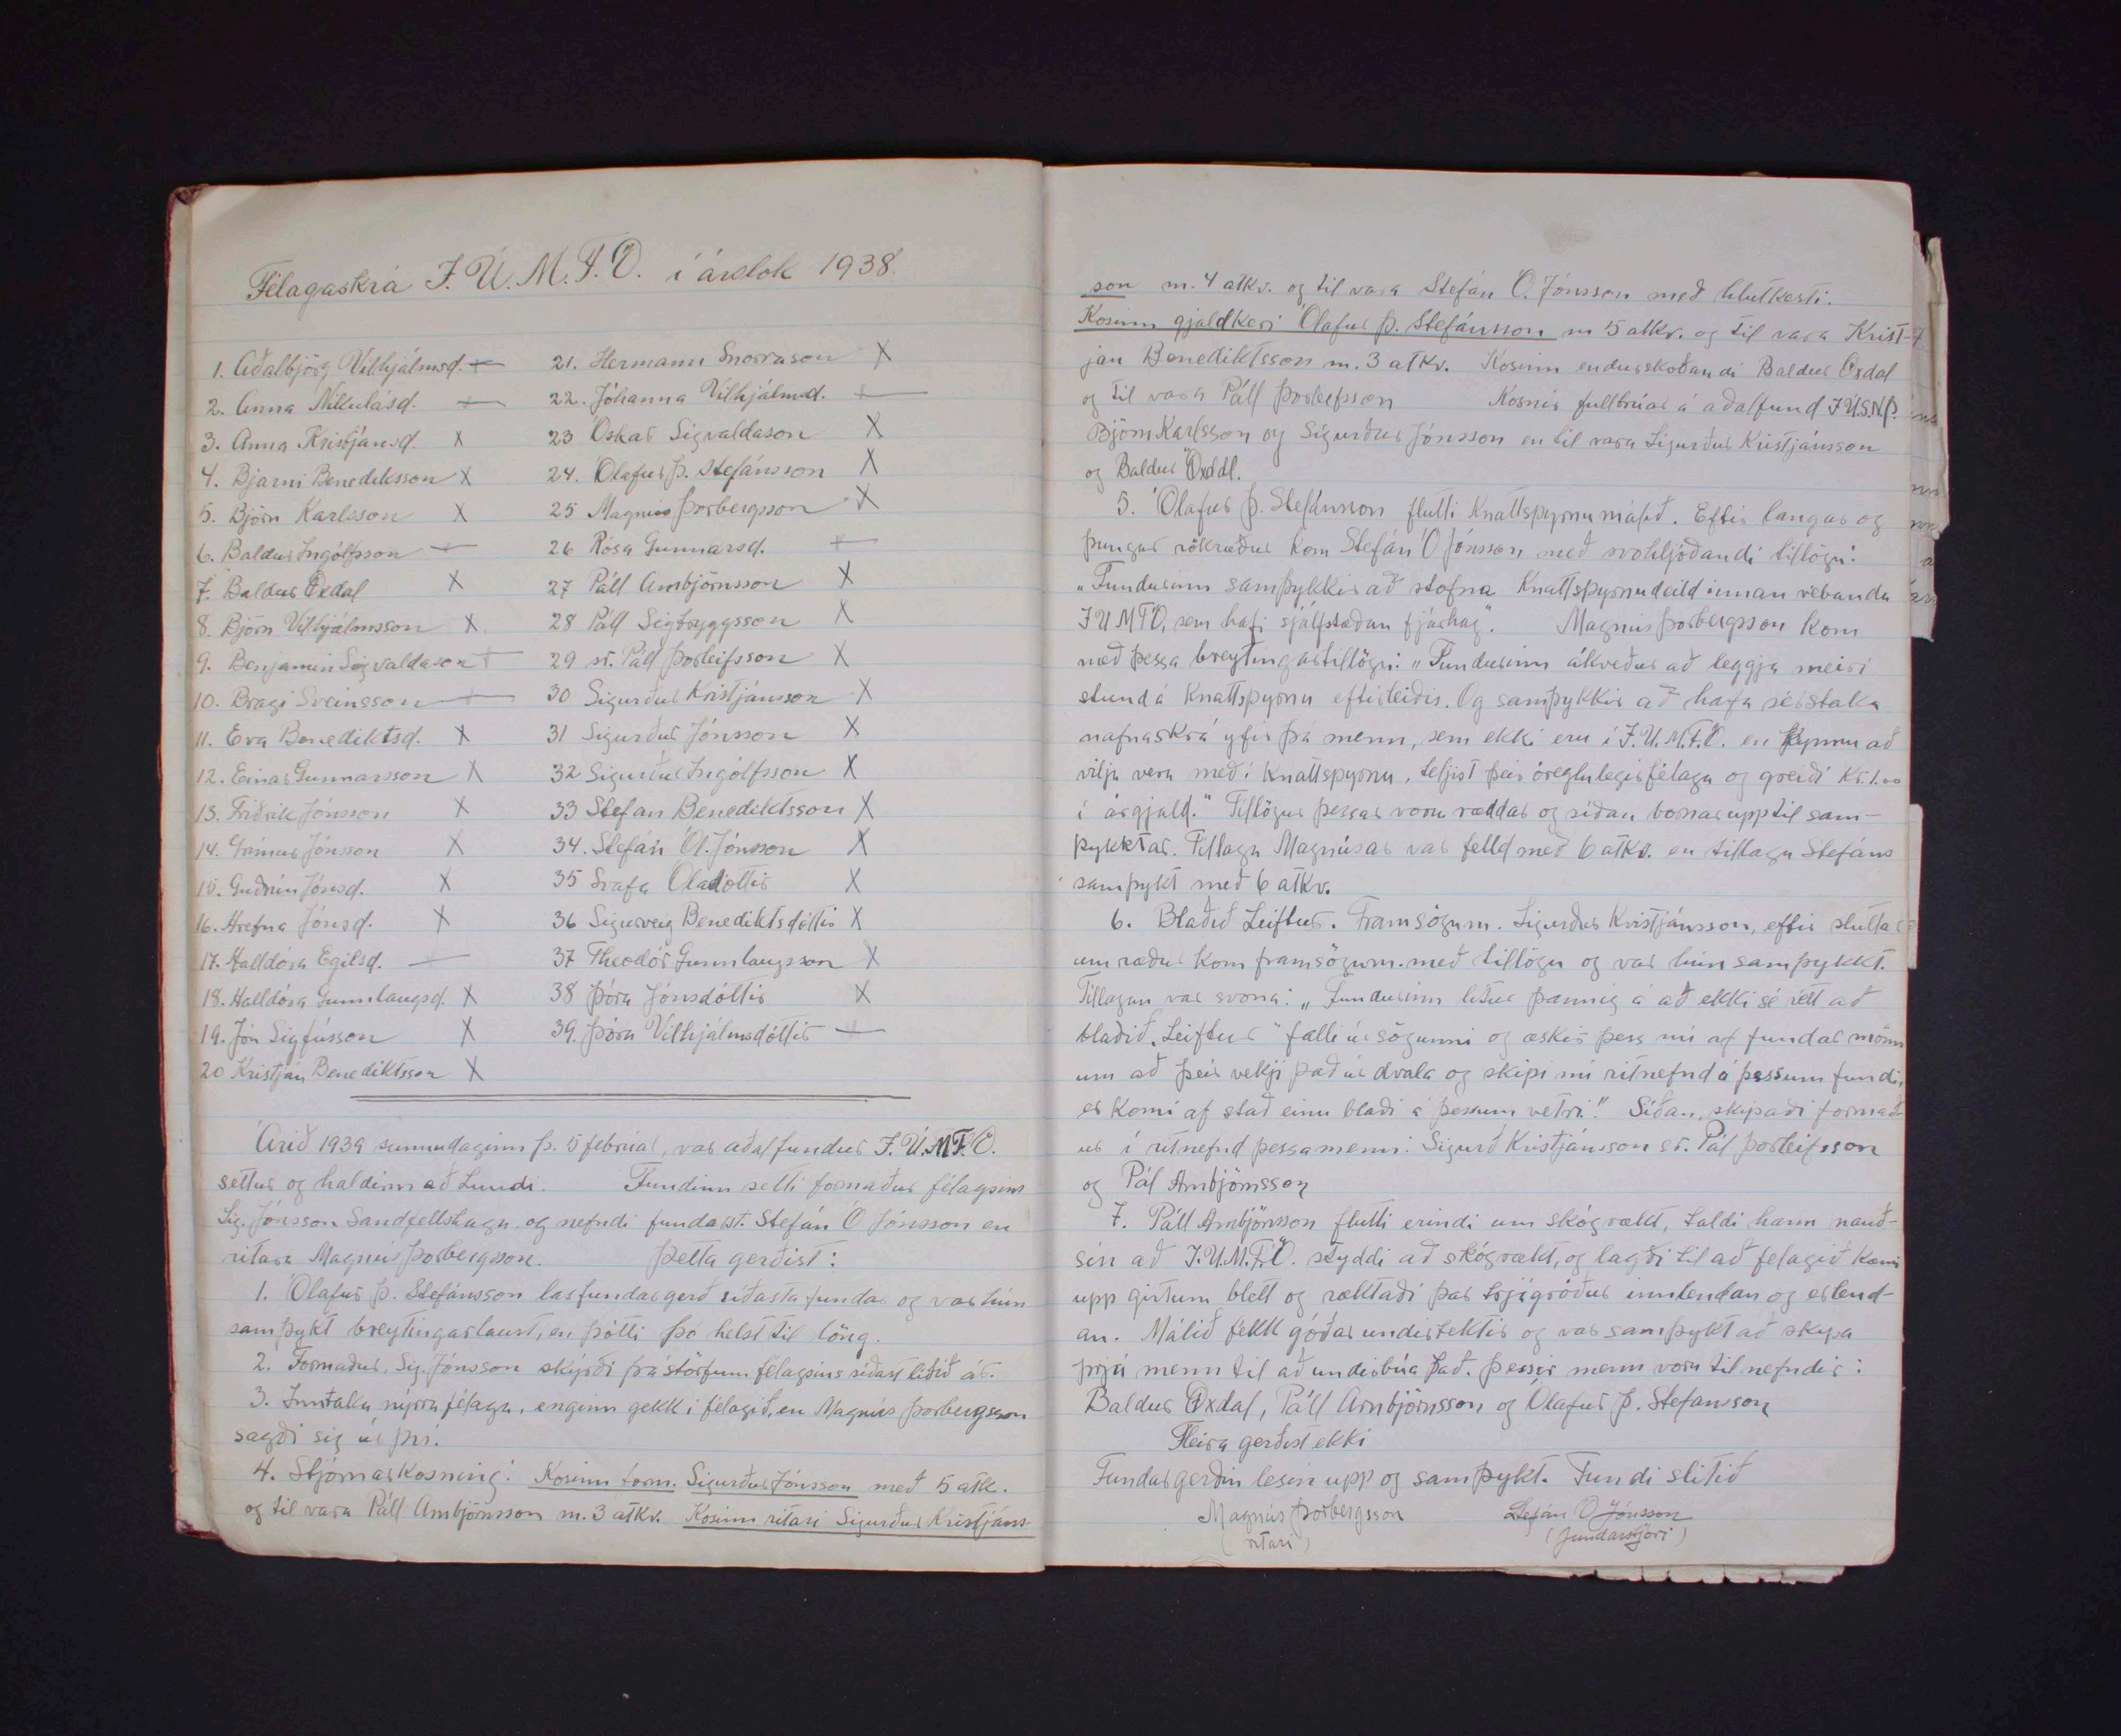 Félagaskrá I.U.M.F.Ö. í árslok 1938.
1. Aðalbjörg Vilhjálmsd. —
2. Anna Nikulásd. —
3. Anna Kristjánsd. X
4. Bjarni Benediksson X
5. Björn Karlsson X
6. Baldur Ingólfsson —
7. Baldur Öxdal X
8. Björn Vilhjálmsson X
9. Benjamín Sigvaldason —
10. Bragi Sveinsson —
11. Eva Benediktsd. X
12. Einar Gunnarsson X
13. Friðrik Jónsson X
14. Grímur Jónsson X
15. Guðrún Jónsd. X
16. Hrefna Jónsd. X
17. Halldóra Egilsd. —
18. Halldóra Gunnlaugsd. X
19. Jón Sigfússon X
20 Kristján Benediktsson X
21. Hermann Snorrason X
22. Jóhanna Vilhjálmsd. —
23 Óskar Sigvaldason X
24. Ólafur Þ. Stefánsson X
25 Magnús Þorbergsson X
26 Rósa Gunnarsd. —
27 Páll Arnbjörnsson X
28 Páll Sigtryggsson X
29 sr. Páll Þorleifsson X
30 Sigurður Kristjánsson X
31 Sigurður Jónsson X
32 Sigurður Ingólfsson X
33 Stefan Benediktsson X
34. Stefán Ól. Jónsson X
35 Svafa Óladóttir X
36 Sigurveig Benediktsdóttir X
37 Theodór Gunnlaugsson X
38 Þóra Jónsdóttir X
39. Þóra Vilhjálmsdóttir —
Árið 1939 sunnudaginn þ. 5 febrúar, var aðalfundur I.U.M.F.Ö.
settur og haldinn að Lundi. Fundinn setti formaður félagsins
Sig. Jónsson Sandfellshaga, og nefndi fundarst. Stefán Ó Jónsson en
ritara Magnús Þorbergsson. Þetta gerðist:
1. Ólafur Þ. Stefánsson las fundargerð síðasta fundar og var hún
samþykt breytingarlaust, en þótti þó helst til löng.
2. Formaður, Sig. Jónsson skýrði frá störfum félagsins síðast liðið ár.
3. Inntaka nýrra félaga, enginn gekk í félagið, en Magnús Þorbergsson
sagði sig úr því.
4. Stjórnarkosning: Kosinn form. Sigurður Jónsson með 5 atk.
og til vara Páll Arnbjörnsson m. 3 atkv. Kosinn ritari Sigurður Kristjáns-
son m. 4 atkv. og til vara Stefán Ó. Jónsson með hlutkesti.
Kosinn gjaldkeri Ólafur Þ. Stefánsson m 5 atkv. og til vara Krist-
ján Benediktsson m. 3 atkv. Kosinn endurskoðandi Baldur Öxdal
og til vara Páll Þorleifsson Kosnir fulltrúar á aðalfund I.U.S.N.Þ.
Björn Karlsson og Sigurður Jónsson en til vara Sigurður Kristjánsson
og Baldur Öxdal.
5. Ólafur Þ. Stefánsson flutti Knattspyrnumálið. Eftir langar og
þungar rökræður kom Stefán Ó Jónsson með svohljóðandi tillögu:
„Fundurinn samþykkir að stofna Knattspyrnudeild innan vébanda
I U M F Ö, sem hafi sjálfstæðan fjárhag". Magnús Þorbergsson kom
með þessa breytingartillögu: „Fundurinn ákveður að leggja meiri
stund á Knattspyrnu eftirleiðis. Og samþykkir að hafa sérstaka
nafnaskrá yfir þá menn, sem ekki eru í I.U.M.F.Ö. en kynnu að
vilja vera með í Knattspyrnu, teljist þeir óreglulegir félagar og greiði Kr. 1.00
í árgjald." Tillögur þessar voru ræddar og síðan bornar upp til sam-
þykktar. Tillaga Magnúsar var felld með 6 atkv. en tillaga Stefáns
samþykt með 6 atkv.
6. Blaðið Leiftur. Framsögum. Sigurður Kristjánsson, eftir stuttar
umræður kom framsögum. með tillögu og var hún samþykkt.
Tillagan var svona: „Fundurinn lítur þannig á að ekki sé rétt að
blaðið „Leiftur" falli úr sögunni og æskir þess nú af fundar mönn
um að þeir vekji það úr dvala og skipi nú ritnefnd á þessum fundi,
er komi af stað einu blaði á þessum vetri." Síðan skipaði formað
ur í ritnefnd þessa menn: Sigurð Kristjánsson sr. Pál Þorleifsson
og Pál Arnbjörnsson
7. Páll Arnbjörnsson flutti erindi um skógrækt, taldi hann nauð-
sin að I.U.M.F.Ö. styddi að skógrækt, og lagði til að felagið kæmi
upp girtum blett og ræktaði þar trjágróður innlendan og erlend-
an. Málið fékk góðar undirtektir og var samþykt að skipa
þrjá menn til að undirbúa það. Þessir menn voru til nefndir:
Baldur Öxdal, Páll Arnbjörnsson og Ólafur Þ. Stefansson
Fleira gerðist ekki
Fundargerðin lesin upp og samþykt. Fundi slitið
Magnús Þorbergsson Stefán Ó Jónsson
(ritari) (fundarstjóri)